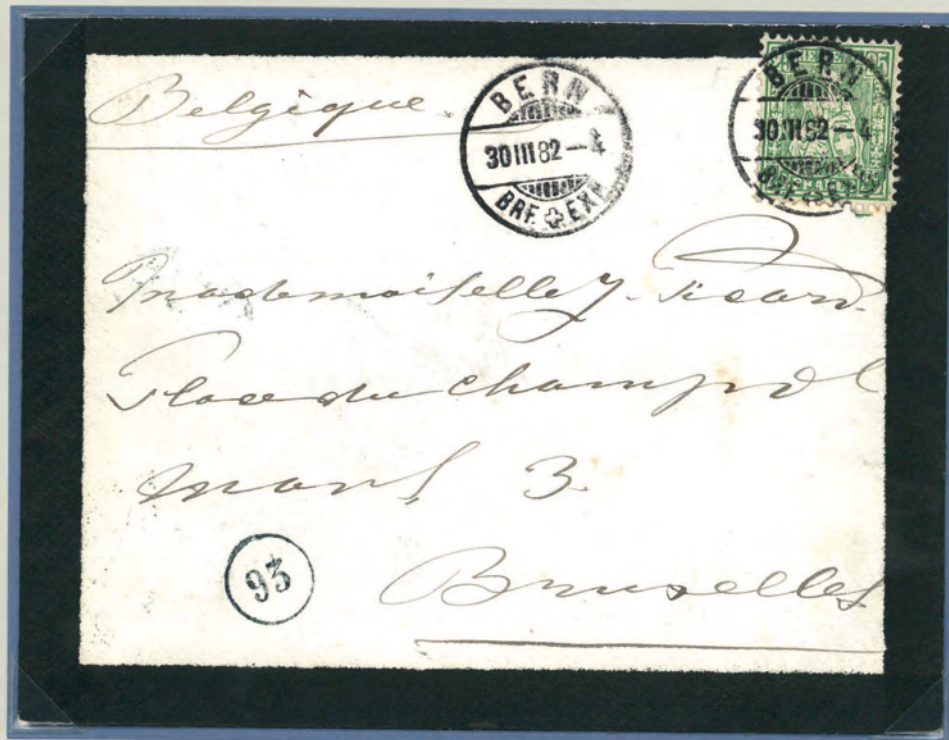 Belgique
BERN
30 III 82 – 4
BRF. EXP.
BERN
30 III 82 – 4
BRF. EXP.
25
Mademoiselle J. Picard
Place du Champ de
Mars 3
93
Bruxelles